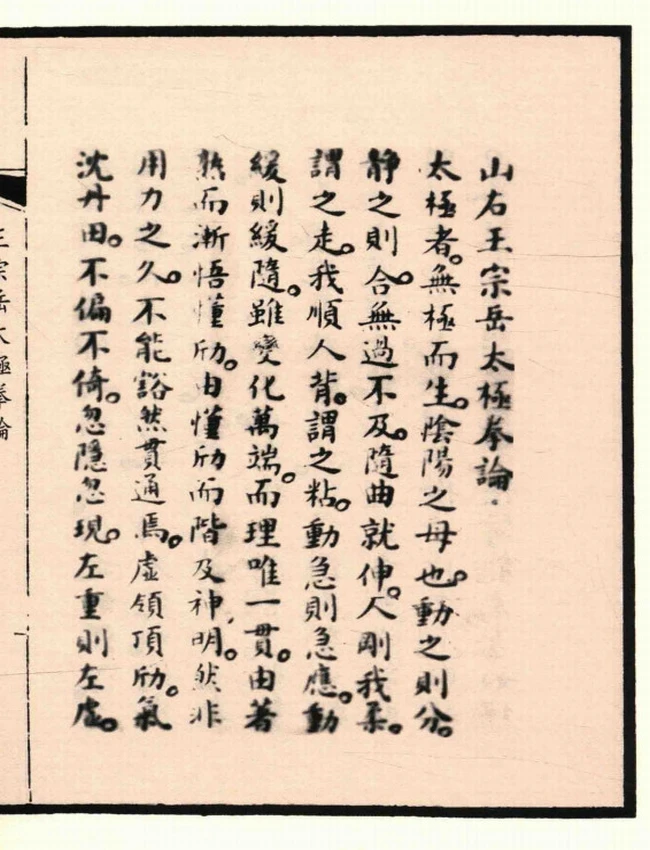 山右王宗岳太極拳論.
太極者。無極而生。陰陽之母也。動之則分。
静之則合。無過不及。隨曲就伸。人剛我柔。
謂之走。我順人背。謂之粘。動急則急應。動
緩則緩隨。雖變化萬端。而理唯一貫。由著
熟而漸悟懂劤。由懂劤而階及神明。然非
用力之久。不能豁然貫通焉。虛領頂劤。氣
沈丹田。不偏不倚。忽隱忽現。左重則左虛。
王宗岳太極拳論